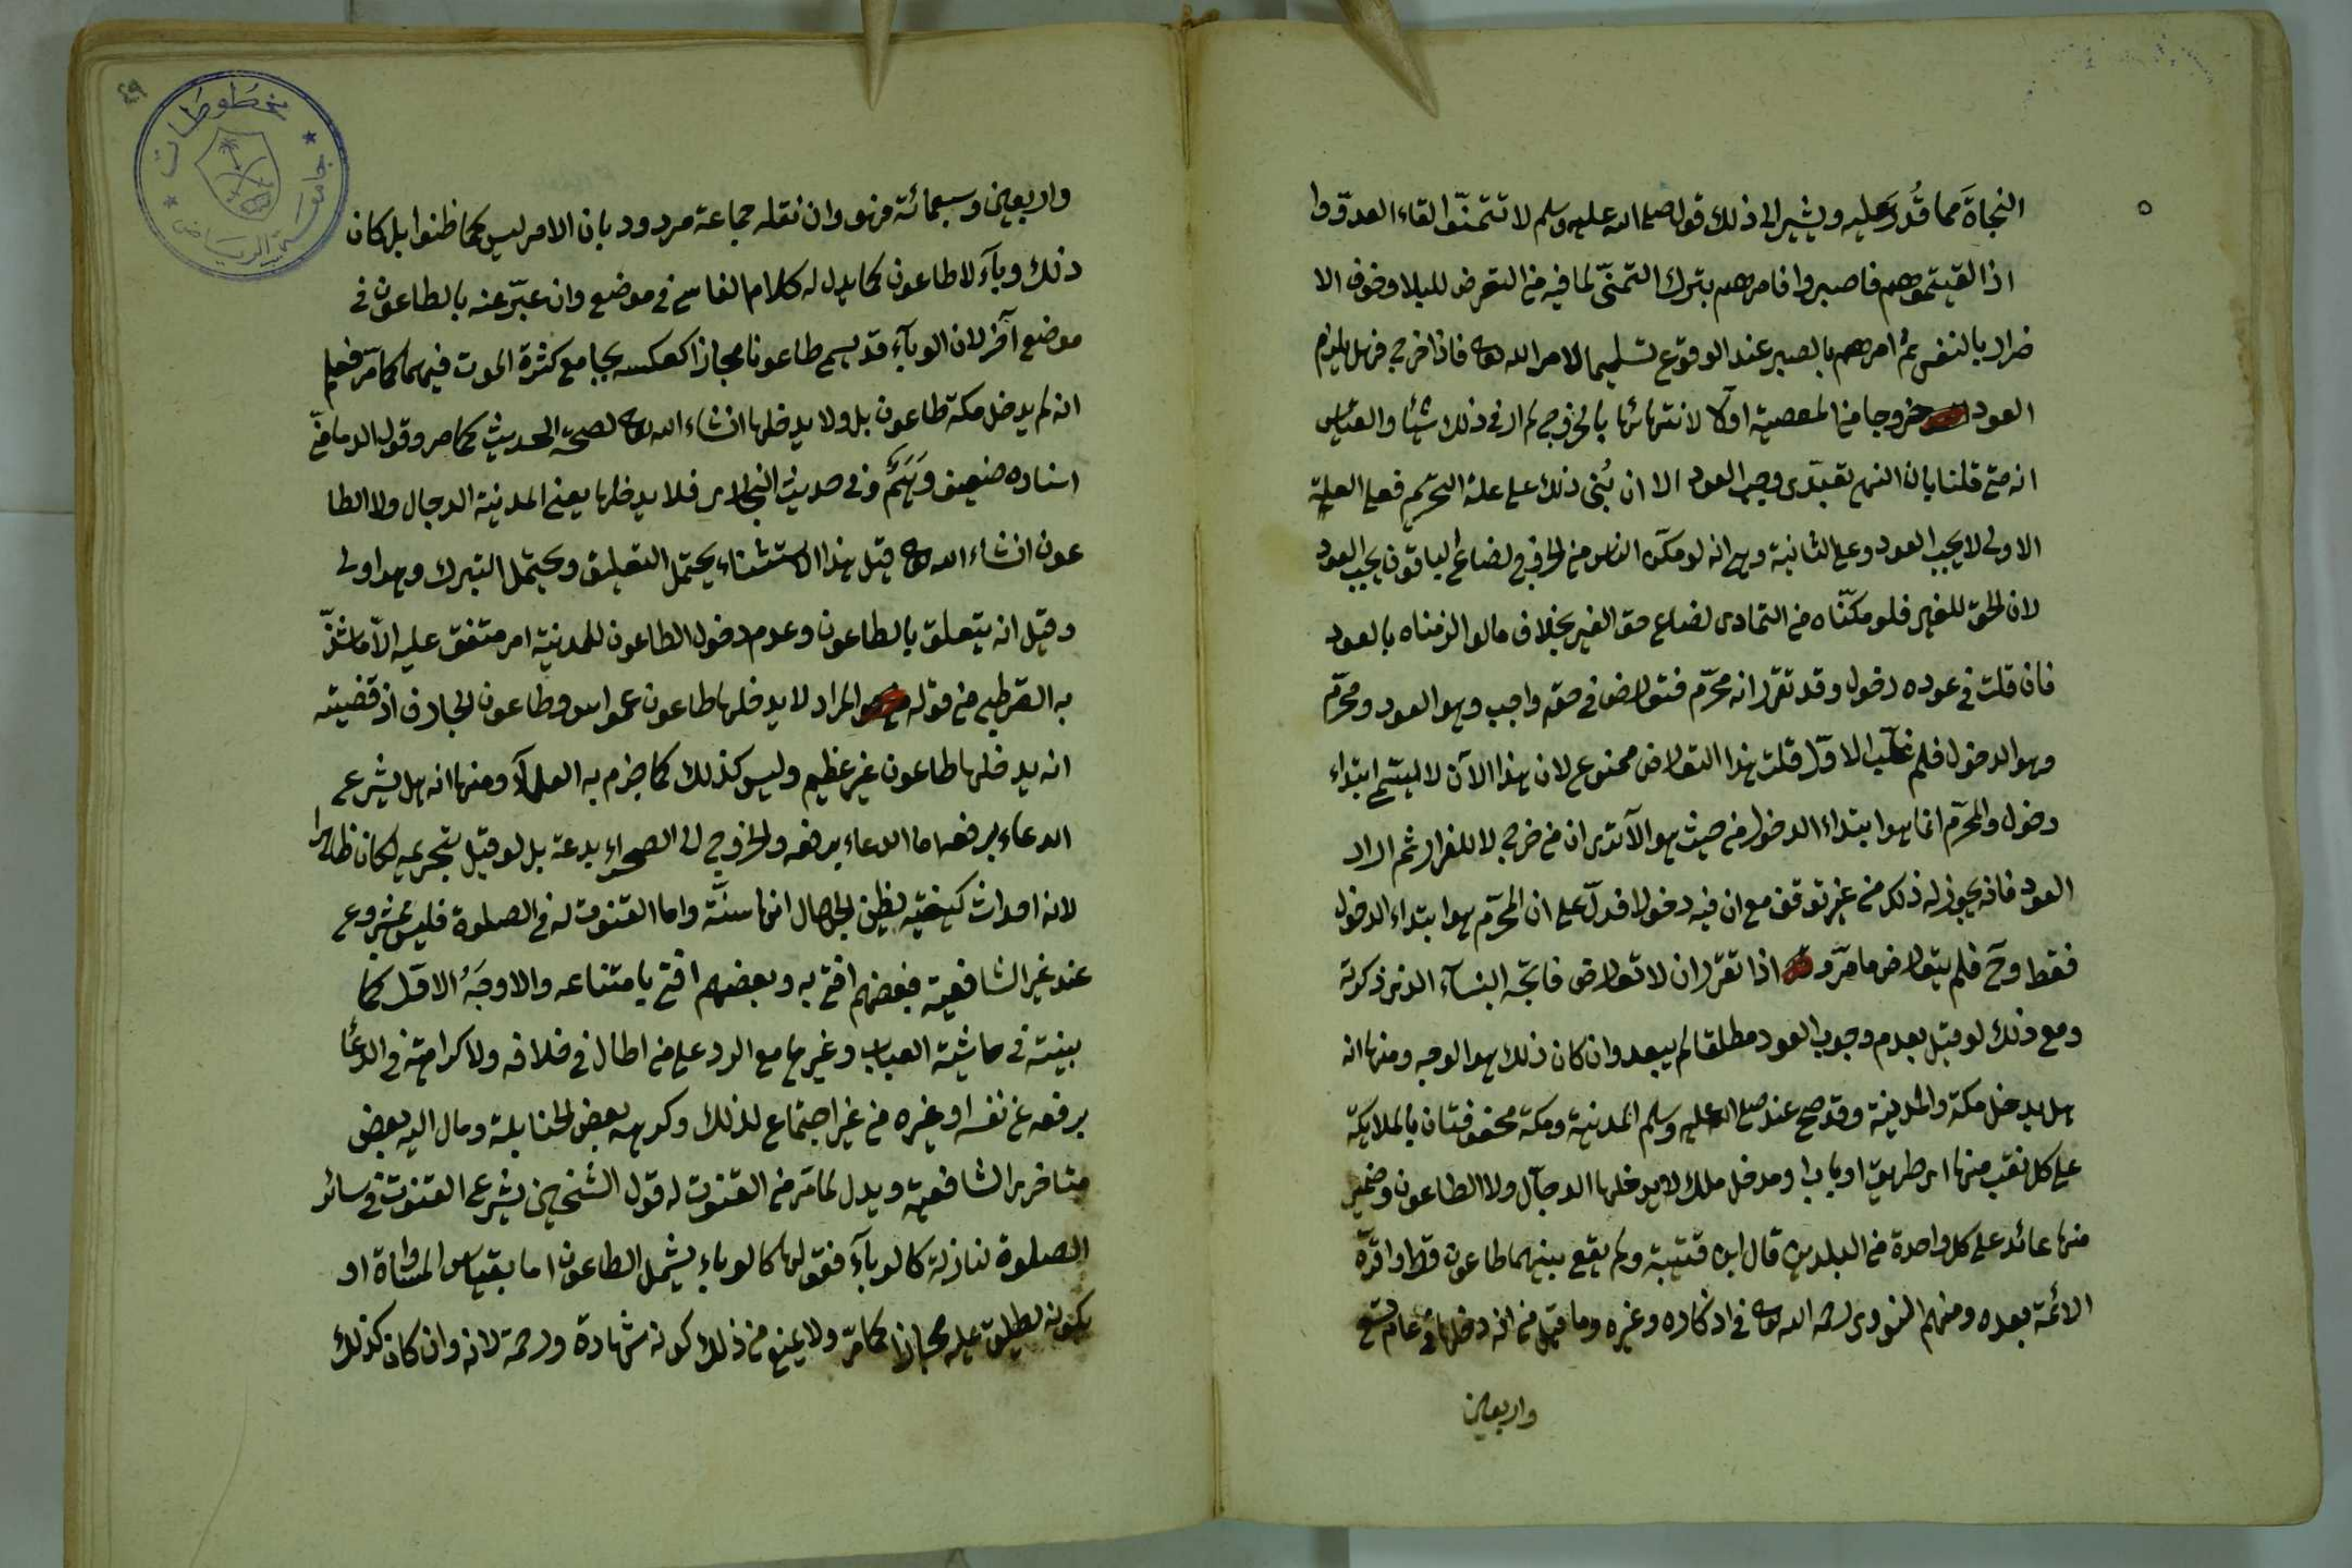 النجاة مما قُدر عليه ويشير الى ذلك قوله صلى الله عليه وسلم لا تتمنّوا لقاء العدوّ وا
اذا لقيتموهم فاصبروا فامرهم بترك التمنّي لما فيه من التعرض للبلا وخوف الا
ضرار بالنفس ثم امرهم بالصبر عند الوقوع تسليما لامر الله تعالى فاذا خرج فهل يلزم
العود خروجا من المعصية اولا لانتهائها بالخروج لم ار في ذلك شيئا والقياس
انه متى قلنا بان النهي تعبّدى وجب العود الا ان بُنى ذلك على علة التحريم فعلى العلية
الاولى لا يجب العود وعلى الثانية وهي انه لو مكن الناس من الخروج لضاع الباقون يجب العود
لان الحق للغير فلو مكنّاه من التمادى لضاع حق الغير بخلاف ما لو الزمناه بالعود
فان قلت في عوده دخول وقد تقرر انه محرّم فتعارض في حقه واجب وهو العود ومحرّم
وهو الدخول فلم غلب الاوّل قلت هذا التعارض ممنوع لان هذا الآن لا يسمى ابتداء
دخول والمحرّم انما هو ابتداء الدخول من حيث هو الا ترى ان من خرج لا للفرار ثم اراد
العود فانه يجوز له ذلك من غير توقف مع ان فيه دخولا فدلّ على ان المحرّم هو ابتداء الدخول
فقط وح فلم يتعارض ما مرّ و اذا تقرر ان لا تعارض فاتجه البناء الذى ذكرته
ومع ذلك لو قيل بعدم وجوب العود مطلقا لم يبعد وان كان ذلك هو الوجه ومنها انه
هل يدخل مكة والمدينة وقد صح عنه صلى الله عليه وسلم المدينة ومكة محفوفتان بالملايكة
على كل نقب منها اى طريق او باب او مدخل ملك لا يدخلها الدجّال ولا الطاعون وضمير
منها عائد على كل واحدة من البلدين قال ابن قتيبة ولم يقع بينهما طاعون قط واقرّه
الائمة بعده ومنهم النووى رحمه الله تعالى في اذكاره وغيره وما قيل من انه دخلها في عام تسع
واربعين
٤٩
مخطوطات
جامعة الرياض
واربعين وسبعمائة فهو وان نقله جماعة مردود بان الامر ليس كما ظنوا بل كان
ذلك وبآء لا طاعون كما يدل له كلام الفاسى في موضع وان عبّر عنه بالطاعون في
موضع آخر لان الوبآء قد يسمى طاعونا مجازا كعكسه بجامع كثرة الموت فيهما كما مرّ فعلم
انه لم يدخل مكة طاعون بل ولا يدخلها انشاء الله تعالى لصحة الحديث كما مر وقول الدمامينى
اسناده ضعيف وَهَمٌ وفي حديث البخارى فلا يدخلها يعنى المدينة الدجال ولا الطا
عون انشاء الله تعالى قيل هذا الاستثناء يحتمل التعليق ويحتمل التبرك وهو اولى
وقيل انه يتعلق بالطاعون وعدم دخول الطاعون للمدينة امر متفق عليه الّا ما شذّ
به القرطبى من قوله المراد لا يدخلها طاعون عمواس وطاعون الجارف اذ قضيته
انه يدخلها طاعون غير عظيم وليس كذلك كما جزم به العلمآء ومنها انه هل يشرع
الدعاء برفعه اما الدعاء برفعه والخروج الى الصحراء بدعة بل لو قيل بتحريمه لكان ظاهرا
لانه احداث كيفية يظن الجهال انها سنّة واما القنوت له في الصلوة فليس بمشروع
عند غير الشافعية فبعضهم افتى به وبعضهم افتى بامتناعه والاوجَهُ الاوّل كما
بينته في حاشية العباب وغيرها مع الرد على من اطال في خلافه ولا كراهة في الدعا
برفعه عن نفسه او غيره من غير اجتماع لذلك وكرهه بعض الحنابلة ومال اليه بعض
متاخرى الشافعية ويدل لما مرّ من القنوت له قول الشيخين يشرع القنوت في سائر
الصلوة لنازلة كالوبآء فقولهما كالوباء يشمل الطاعون اما بقياس المساواة او
بكونه يطلق عليه مجازا كما مرّ ولا يمنع من ذلك كونه شهادة ورحمة لانه وان كان كذلك